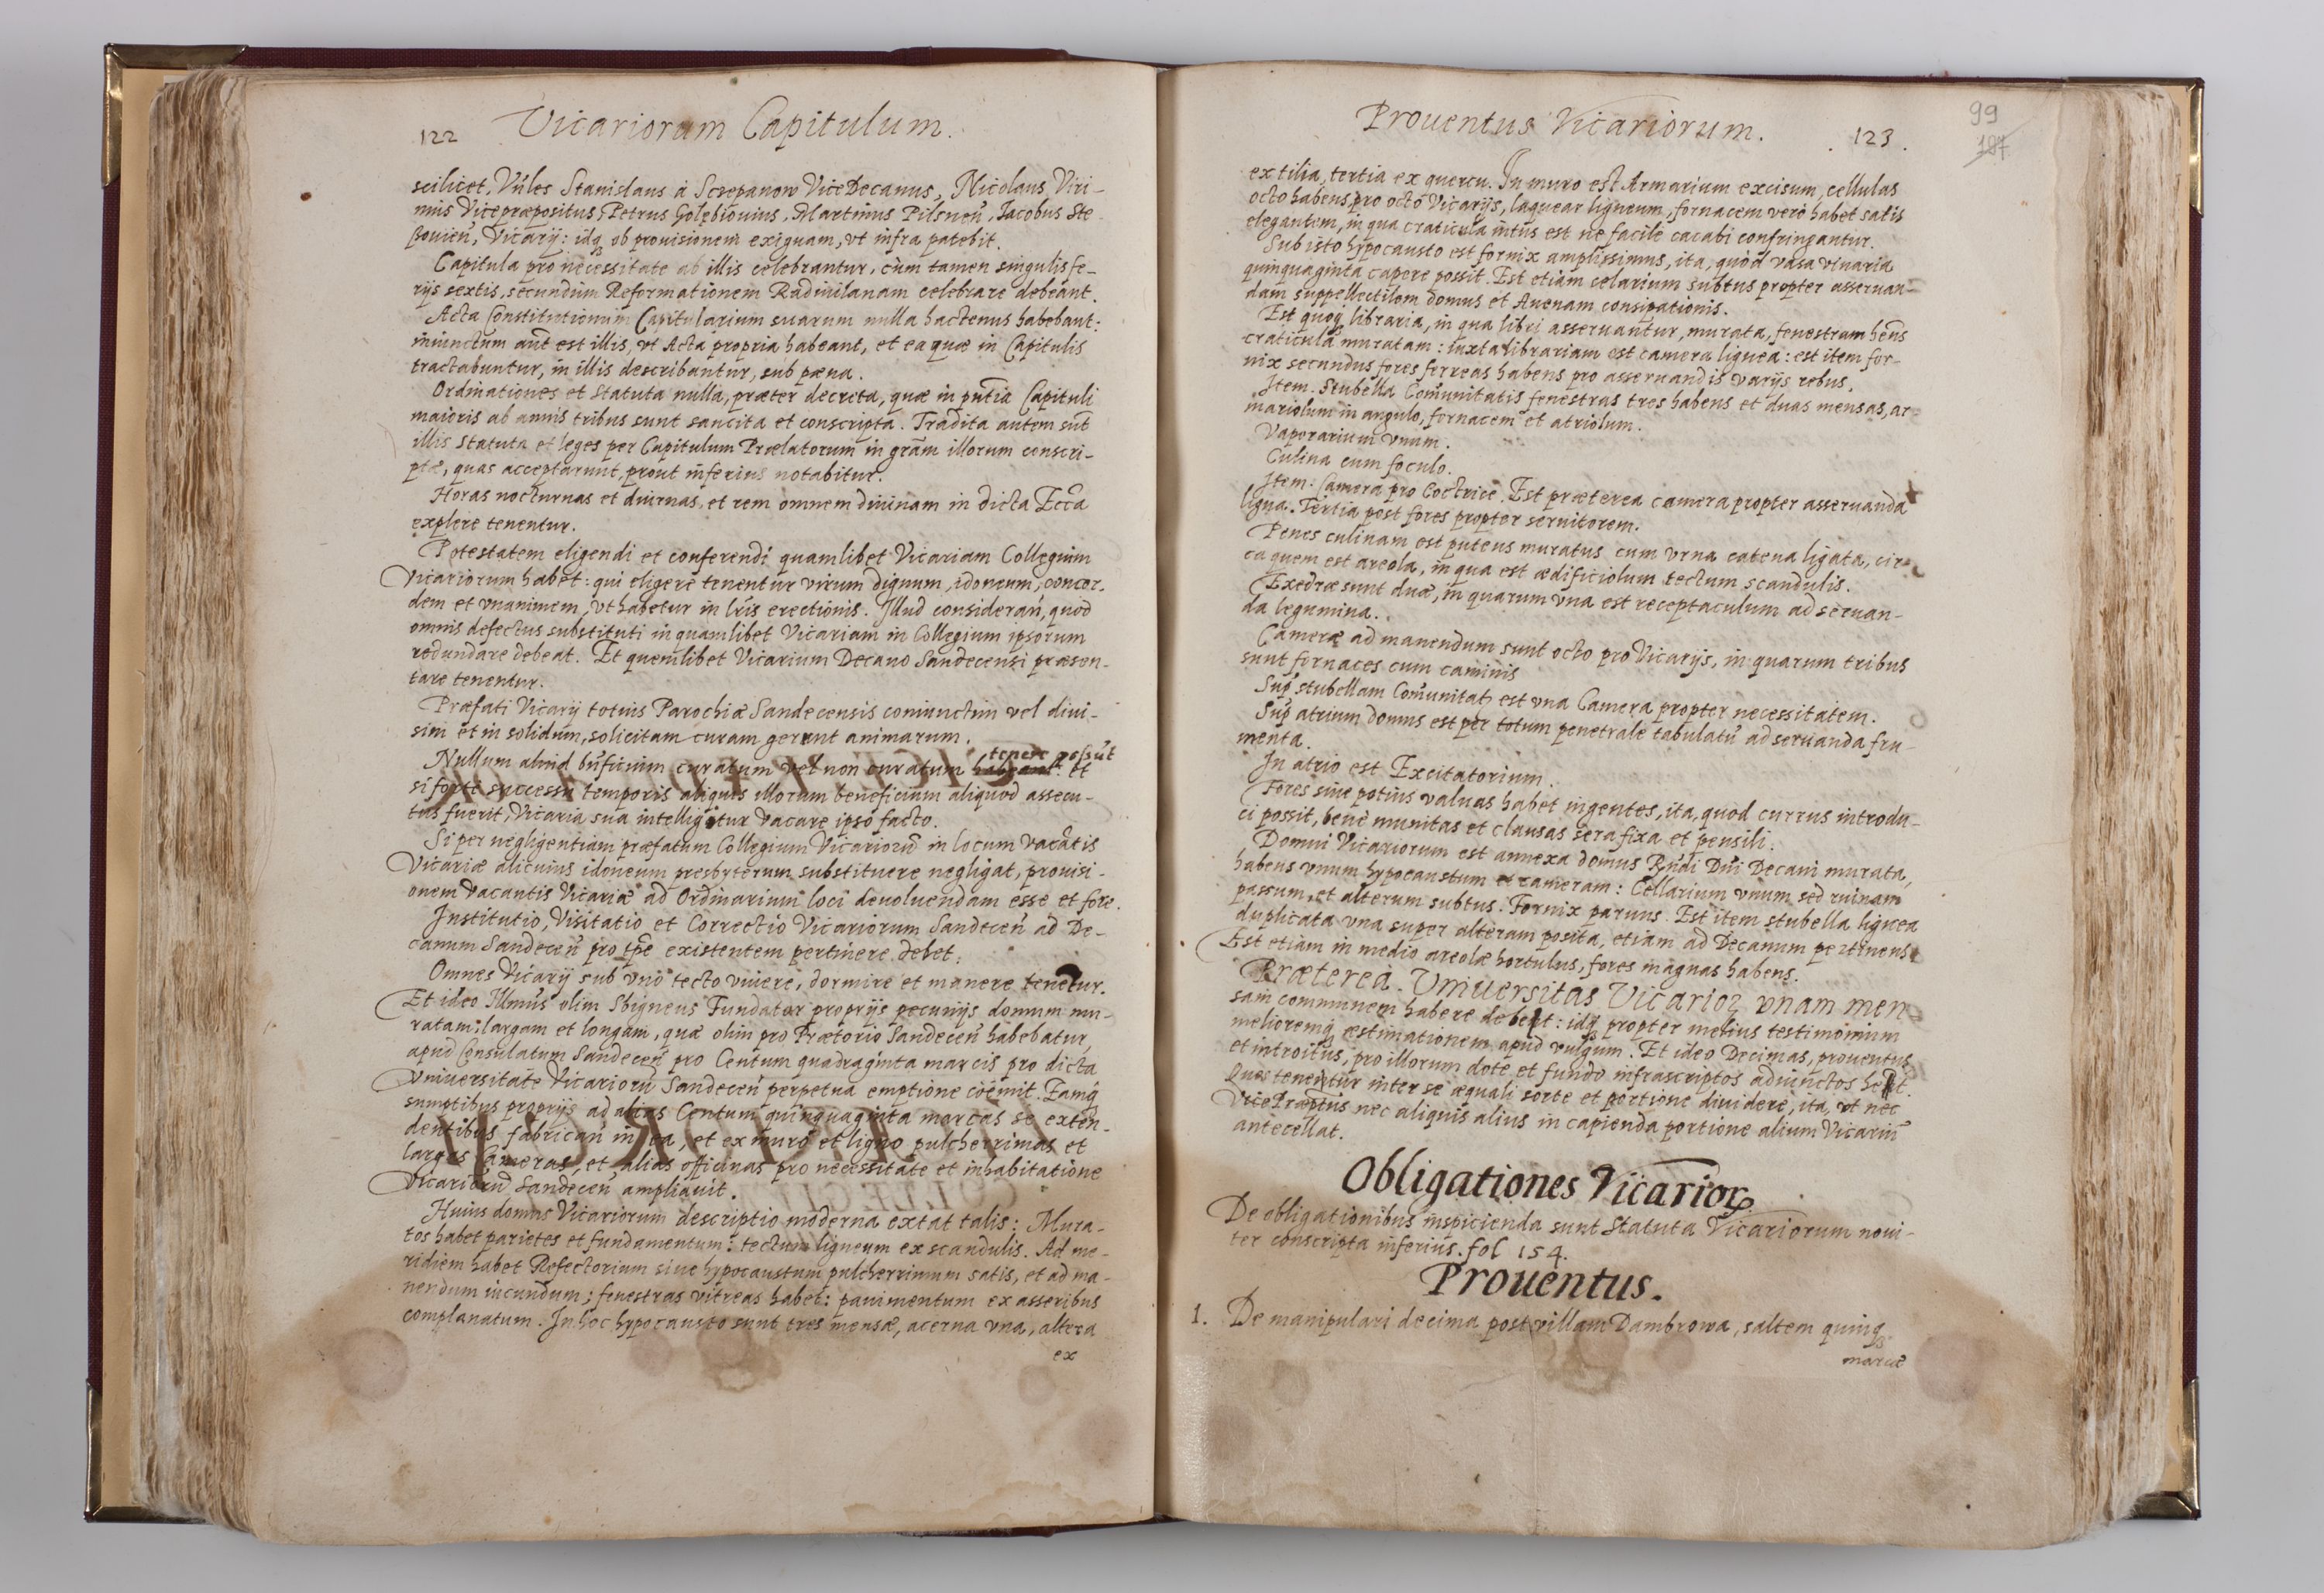 122 Vicariorum Capitulum.
scilicet, Vńles Stanislaus à Sczepanow ViceDecanus, Nicolaus Viri-
nius Vicepræpositus, Petrus Golębiouius, Martinus Pilsneń, Iacobus Ste
ßouień, Vicarij: idq ob prouisionem exiguam, vt infra patebit.
Capitula pro necessitate ab illis celebrantur, cùm tamen singulis fe-
rijs sextis, secundùm Reformationem Radiuilanam celebrare debeant.
Acta Constitutionum Capitularium suarum nulla hactenus habebant:
iniunctum aūt est illis, vt Acta propria habeant, et ea quæ in Capitulis
tractabuntur, in illis describantur, sub pœna.
Ordinationes et Statuta nulla, præter decreta, quæ in pn̄tia Capituli
maioris ab annis tribus sunt sancita et conscripta. Tradita autem sūt
illis Statuta et leges per Capitulum Prælatorum in grām illorum conscri-
ptæ, quas acceptarunt, prout inferius notabitur.
Horas nocturnas et diurnas, et rem omnem diuinam in dicta Eccā
explere tenentur.
Potestatem eligendi et conferendi quamlibet Vicariam Collegium
Vicariorum habet: qui eligere tenentur virum dignum, idoneum, concor-
dem et vnanimem, vt habetur in lr̄is erectionis. Illud considerań, quod
omnis defectus substituti in quamlibet Vicariam in Collegium ipsorum
redundare debeat. Et quemlibet Vicarium Decano Sandecensi præsen-
tare tenentur.
Præfati Vicarij totius Parochiæ Sandecensis coniunctim vel diui-
sim et in solidum, solicitam curam gerunt animarum.
tenere possūt
Nullum aliud bn̄ficium curatum vel non curatum habeant: et
si forte successu temporis aliquis illorum beneficium aliquod assecu-
tus fuerit, Vicaria sua intelligitur vacare ipso facto.
Si per negligentiam præfatum Collegium Vicariorū in locum vacātis
Vicariæ alicuius idoneum presbyterum substituere negligat, prouisi-
onem vacantis Vicariæ ad Ordinarium loci deuoluendam esse et fore.
Institutio, Visitatio et Correctio Vicariorum Sandeceń ad De-
canum Sandeceń pro tp̄e existentem pertinere debet.
Omnes Vicarij sub vno tecto viuere, dormire et manere tenetur.
Et ideo Illmūs olim Sbigneus Fundator proprijs pecunijs domum mu-
ratam, largam et longam, quæ olim pro Prætorio Sandeceń habebatur,
apud Consulatum Sandeceń pro Centum quadraginta marcis pro dicta
Vniuersitate Vicariorū Sandeceń perpetua emptione coëmit. Eamq
sumptibus proprijs ad alias Centum quinquaginta marcas se exten-
dentibus fabricań in ea, et ex muro et ligno pulcherrimas et
largas Cameras, et alias officinas pro necessitate et inhabitatione
Vicariorū Sandeceń ampliauit.
Huius domus Vicariorum descriptio moderna extat talis: Mura-
tos habet parietes et fundamentum: tectum ligneum ex scandulis. Ad me-
ridiem habet Refectorium siue hypocaustum pulcherrimum satis, et ad ma-
nendum iucundum; fenestras vitreas habet: pauimentum ex asseribus
complanatum. In hoc hypocausto sunt tres mensæ, acerna vna, altera
ex
Prouentus Vicariorum. 123.
99
187
ex tilia, tertia ex quercu. In muro est Armarium excisum, cellulas
octo habens pro octo Vicarijs, laquear ligneum, fornacem verò habet satis
elegantem, in qua craticula intùs est ne facilè cacabi confringantur.
Sub isto hypocausto est fornix amplissimus, ita, quòd vasa vinaria
quinquaginta capere possit. Est etiam celarium subtus propter asseruan-
dam suppellectilem domus et Auenam consipationis.
Est quoq libraria, in qua libri asseruantur, murata, fenestram hēns
craticula muratam: iuxta librariam est camera lignea: est item for-
nix secundus fores ferreas habens pro asseruandis varijs rebus.
Item. Stubella Comūnitatis fenestras tres habens et duas mensas, ar-
mariolum in angulo, fornacem et atriolum.
Vaporarium vnum.
Culina cum foculo.
Item: Camera pro Coctrice. Est præterea camera propter asseruanda
ligna. Tertia post fores propter seruitorem.
Penes culinam est puteus muratus cum vrna catena ligata, cir-
ca quem est areola, in qua est ædificiolum tectum scandulis.
Exedræ sunt duæ, in quarum vna est receptaculum ad seruan-
da legumina.
Cameræ ad manendum sunt octo pro Vicarijs, in quarum tribus
sunt fornaces cum caminis
Sup stubellam Comūnitat est vna Camera propter necessitatem.
Sup atrium domus est per totum penetrale tabulatū ad seruanda fru-
menta.
In atrio est Excitatorium.
Fores siue potius valuas habet ingentes, ita, quod currus introdu-
ci possit, benè munitas et clausas sera fixa et pensili.
Domui Vicariorum est annexa domus Rn̄di Dn̄i Decani murata,
habens vnum hypocaustum et cameram: Cellarium vnum, sed ruinam
passum, et alterum subtus. Fornix paruus. Est item stubella lignea
duplicata vna super alteram posita, etiam ad Decanum pertinens.
Est etiam in medio areolæ hortulus, fores magnas habens.
Præterea. Vniuersitas Vicarioꝝ vnam men-
sam communem habere debent: idq propter melius testimonium
melioremq æstimationem apud vulgum. Et ideo Decimas, prouentus
et introitus, pro illorum dote et fundo infrascriptos adiunctos hēnt.
Quos tenentur inter se æquali sorte et portione diuidere, ita, vt nec
VicePræptūs nec aliquis alius in capienda portione alium Vicariū
antecellat.
Obligationes Vicarioꝝ
De obligationibus inspicienda sunt Statuta Vicariorum noui-
ter conscripta inferiùs. fol 154.
Prouentus.
1. De manipulari decima post villam Dambrowa, saltem quinq
marcæ